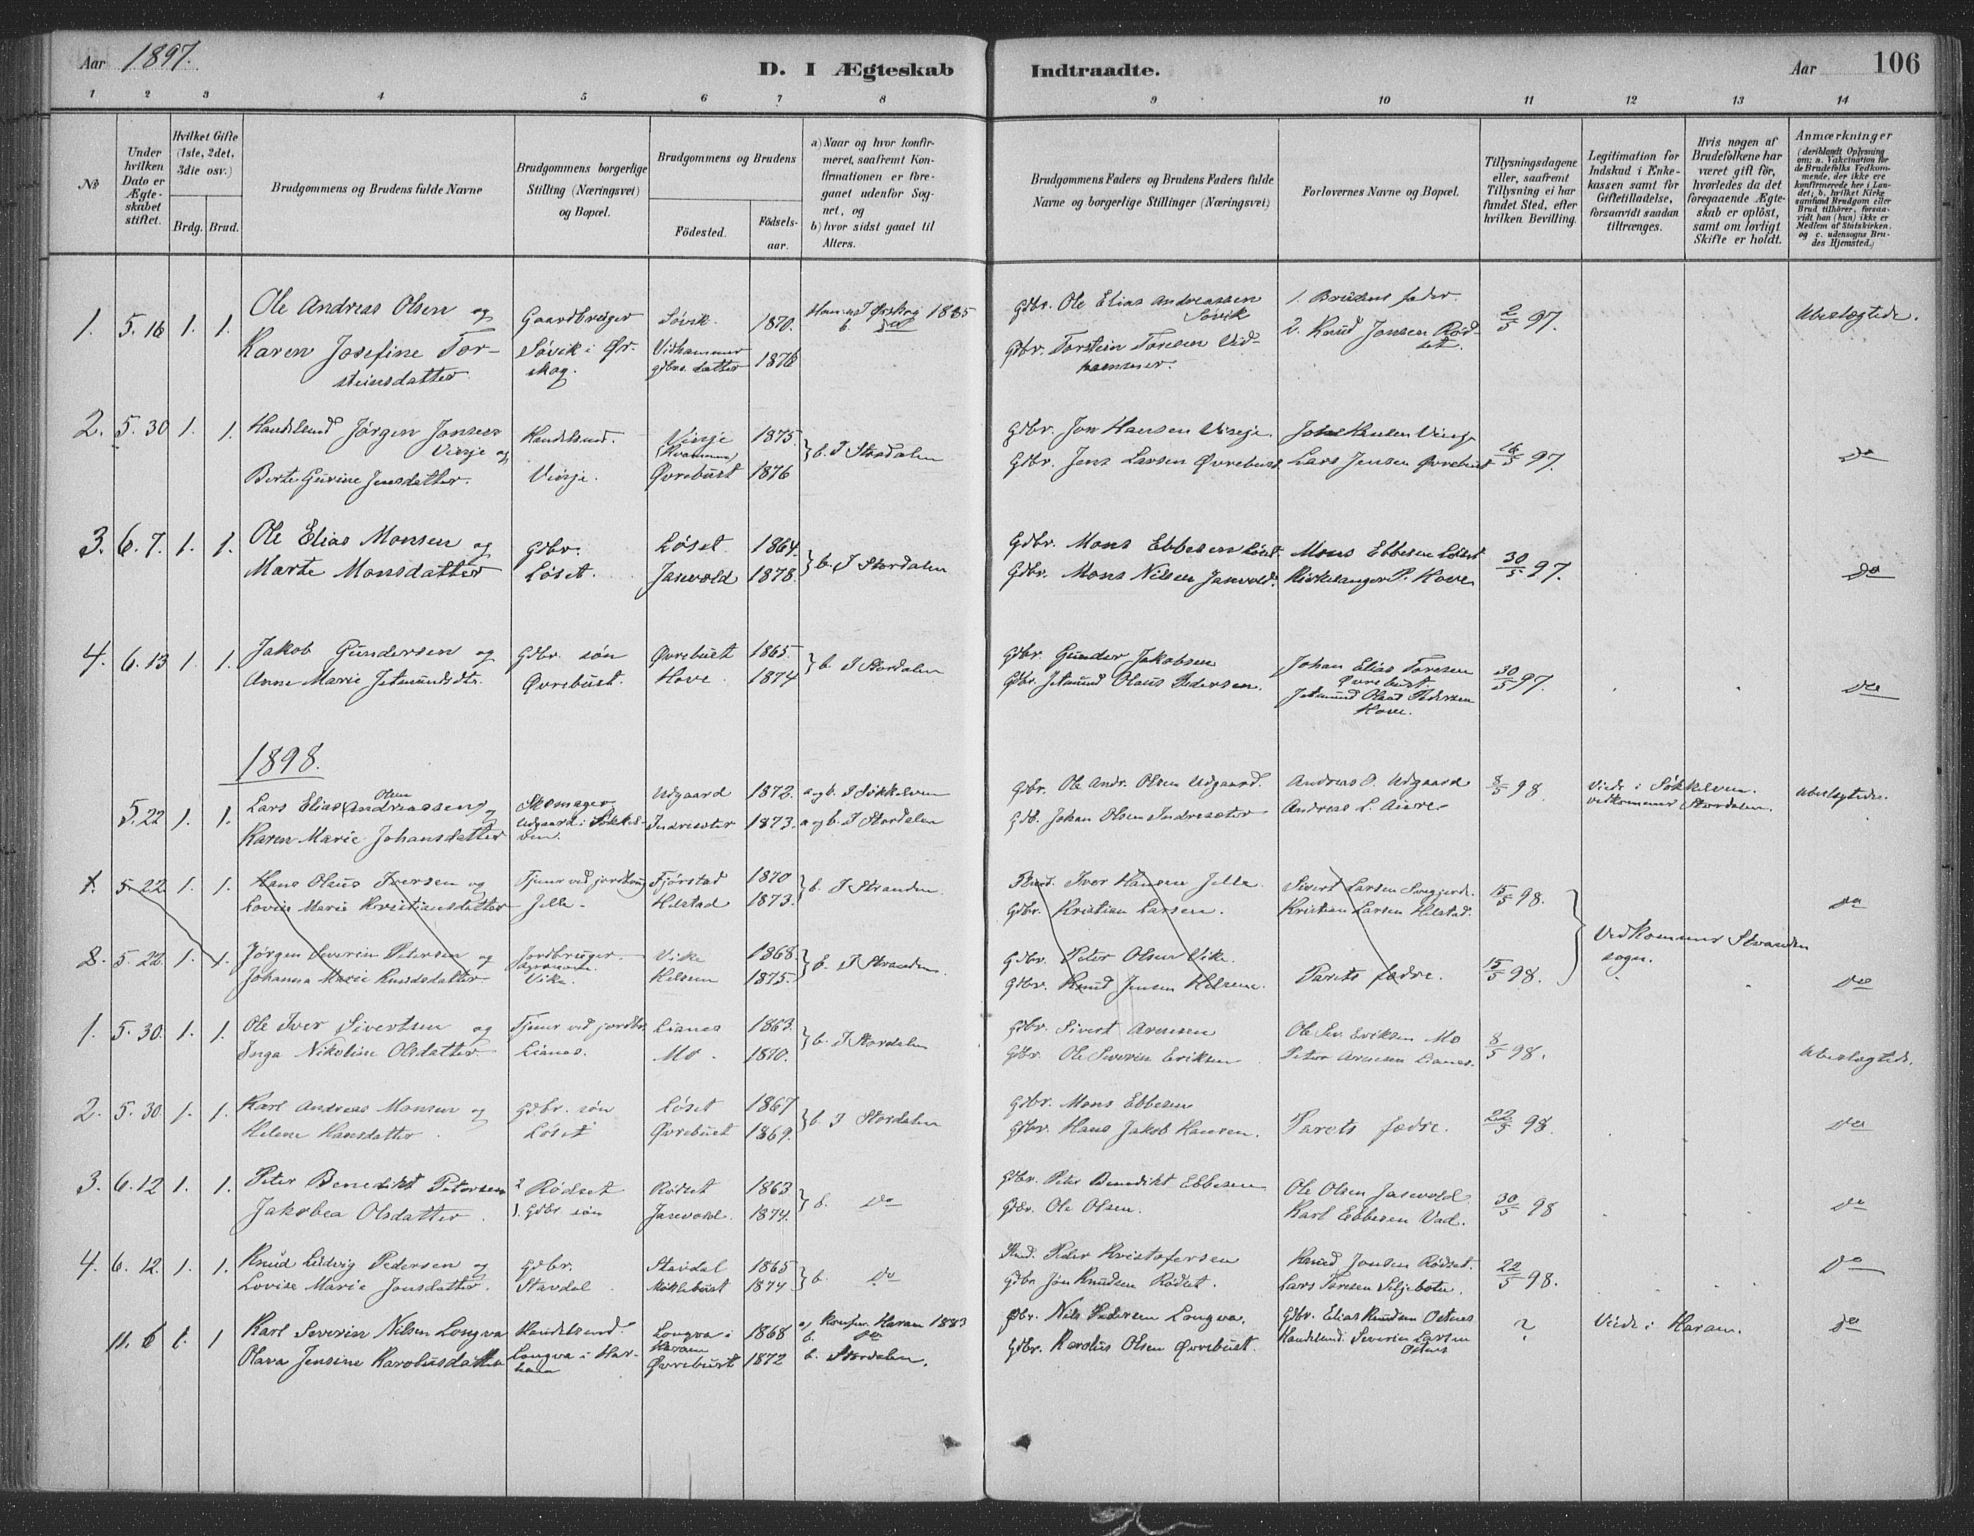 Aar 1897.
D. I Ægteskab Indtraadte.
Aar 106
1 2 3 4 5 6 7 8 9 10 11 12 13 14
No
Under hvilken Dato er Ægteskabet stiftet.
Hvilket Gifte (1ste, 2det, 3die osv.)
Brdg. Brud.
Brudgommens og Brudens fulde Navne
Brudgommens borgerlige Stilling (Næringsvei) og Bopæl.
Brudgommens og Brudens
Födested.
Födselsaar.
a) Naar og hvor konfirmeret, saafremt Konfirmationen er foregaaet udenfor Sognet, og
b) hvor sidst gaaet til Alters.
Brudgommens Faders og Brudens Faders fulde Navne og borgerlige Stillinger (Næringsvei)
Forlovernes Navne og Bopæl.
Tillysningsdagene eller, saafremt Tillysning ei har fundet Sted, efter hvilken Bevilling.
Legitimation for Indskud i Enkekassen samt for Giftetilladelse, forsaavidt saadan tiltrænges.
Hvis nogen af Brudefolkene har været gift för, hvorledes da det foregaaende Ægteskab er oplöst, samt om lovligt Skifte er holdt.
Anmærkninger
(deriblandt Oplysning om: a. Vakcination for de Brudefolks Vedkommende, der ikke ere konfirmerede her i Landet; b. hvilket Kirkesamfund Brudgom eller Brud tilhörer, forsaavidt han (hun) ikke er Medlem af Statskirken, og c. udensogns Brudes Hjemsted.)
1. 5. 16 1. 1. Ole Andreas Olsen og Gaardbruger Søvik. 1870. 1885 Gdbr. Ole Elias Andreassen Søvik 1. Brudens fader. 2/5 97. Ubeslægtede.
Karen Josefine Torsteinsdatter Søvik i Ørskog. Vidhammer gdbrs. datter 1876 Gdbr. Torstein Toresen Vidhammer. 2. Knud Jonsen Rødset.
2. 5. 30 1. 1. Handelsmd Jørgen Jonsen Viseje og Handelsmd. 1875. } b. I Stordalen Gdbr. Jon Hansen 16/5 97. do
Berte Gurine Jensdatter. Øvrebust 1876 Gdbr. Jens Larsen Øvrebust Lars Jensen Øvrebust
3. 6. 7. 1. 1. Ole Elias Monsen og Gdbr. Løset. 1864. } b. I Stordalen Gdbr. Mons Ebbesen Løset. Mons Ebbesen Løset 30/5 97. do
Marte Monsdatter Løset. Jasevold 1878. Gdbr. Mons Nilsen Jasevold. Kirkesanger P. Hove
4. 6. 13 1. 1. Jakob Gundersen og Gdbr. søn Øvrebust 1865. } b. I Stordalen Gdbr Gunder Jakobsen Johan Elias Toresen Øvrebust. 30/5 97. do
Anne Marie Jetmundsdtr. Øvrebust. Hove. 1874 Gdbr. Jetmund Olaus Pedersen. Jetmund Olaus Pedersen Hove.
1898.
5. 22 1. 1. Lars Elias Olsen (Andreassen) og Skomager Udgaard 1872. a og b. I Søkkelven Gdbr. Ole Andr. Olsen Udgaard. Andreas O. Udgaard 8/5 98. Viede i Søkkelven. vedkommer Stordalen. Ubeslægtede.
Karen Marie Johansdatter Udgaard i Søkkelven. Indresæter 1873. a og b. I Stordalen Gdb. Johan Olsen Indresæter Andreas L.
1. 5. 22 1. 1. Hans Olaus Iversen og Tjener ved jordbrug Fjørstad 1870 } b. I Stranden. Iver Hansen Jelle. Sivert Larsen 15/5 98. do
Lovise Marie Kristiansdatter Jelle. Helstad 1873. Gdbr. Kristian Larsen. Kristian Larsen Helstad. } Vedkommer Stranden sogn.
2. 5. 22 1. 1. Jørgen Severin Petersen og Jordbruger. Vike 1868. } b. I Stranden. Gdbr. Peter Olsen Vike. 15/5 98. do
Johanna Marie Knudsdatter. Vike. Helsem 1875. Gdbr. Knud Jensen Helsem. Parets fædre.
1. 5. 30. 1. 1. Ole Iver Sivertsen og Tjener ved jordbr. Lianes 1863. } b. I Stordalen Gdbr. Sivert Arnesen Ole Sev. Eriksen Mo 8/5 98. Ubeslægtede.
Inga Nikoline Olsdatter Lianes. Mo. 1870. Gdbr. Ole Severin Eriksen Peter Arnesen Lianes.
2. 5. 30 1. 1. Karl Andreas Monsen og Gdbr. søn Løset 1867 } b I Stordalen Gdbr. Mons Ebbesen 22/5 98. do
Helene Hansdatter. Løset Øvrebust 1869. Gdbr. Hans Jakob Hansen. Parets fædre.
3. 6. 12 1. 1. Peter Benedikt Petersen Rødset Rødset 1863 } b. do Gdbr. Peter Benedikt Ebbesen Ole Olsen Jasevold 30/5 98 do
Jakobea Olsdatter. Gdbr søn Jasevold. 1874. Gdbr. Ole Olsen. Karl Ebbesen Vad.
4. 6. 12. 1. 1. Knud Ludvig Pedersen og Gdbr. Stavdal 1865 } b. do Peder Kristofersen Knud Jonsen Rødset. 22/5 98. do
Lovise Marie Jonsdatter. Stavdal 1874 Gdbr Jon Knudsen Rødset. Lars Toresen
11. 6 1. 1 Karl Severin Nilsen Longva Handelsmd. Longva i Haram 1868 a) Konfr. Haram 1883 b. do Gbr. Nils Pedersen Longva. Gdbr. Elias Knudsen ? Viede i Haram. do
Olava Jensine Karolusdatter Longva i Harham Øvrebust 1872 b. Stordalen. Gdbr. Karolus Olsen Øvrebust. Handelsmd. Severin Larsen